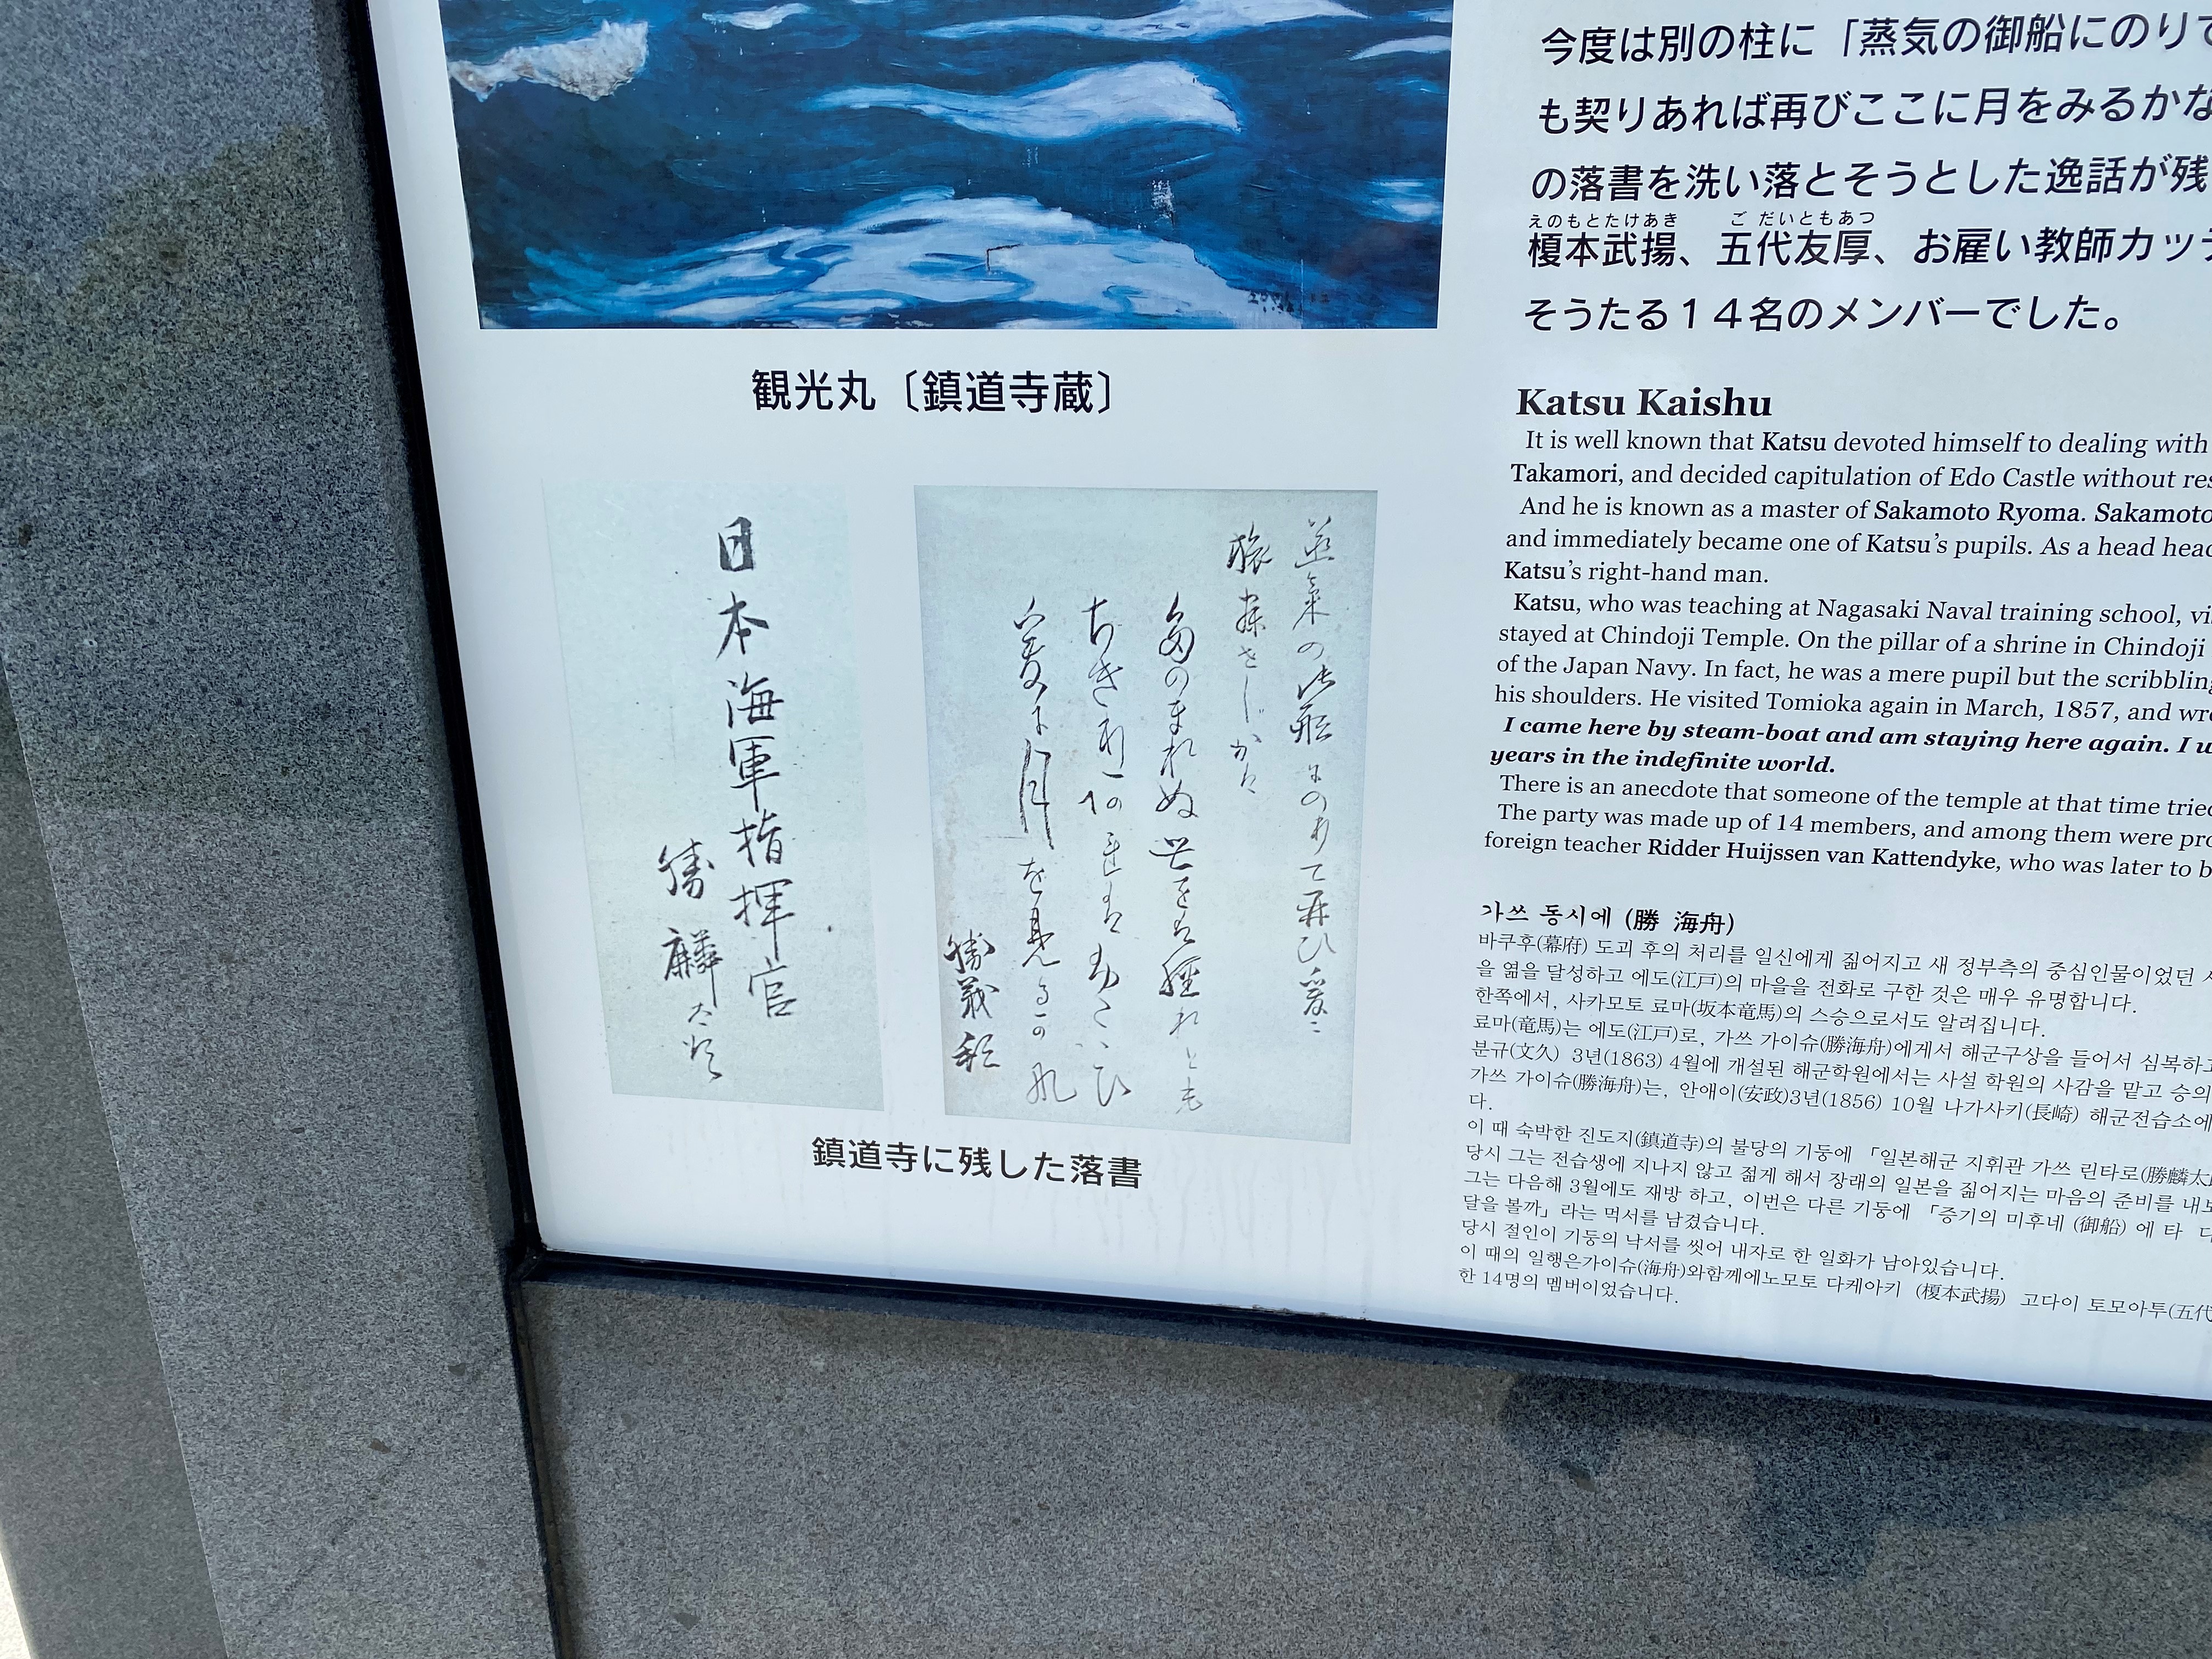 今度は別の柱に「蒸気の御船にのりて
も契りあれば再びここに月をみるかな
の落書を洗い落とそうとした逸話が残
えのもとたけあき ご だいともあつ
榎本武揚、五代友厚、お雇い教師カッテ
そうたる14名のメンバーでした。
観光丸〔鎮道寺蔵〕
日本海軍指揮官
勝麟太郎
蒸氣の御船にのりて再ひ爰に
旅寐をしける
勝義邦
鎮道寺に残した落書
Katsu Kaishu
It is well known that Katsu devoted himself to dealing with
Takamori, and decided capitulation of Edo Castle without res
And he is known as a master of Sakamoto Ryoma. Sakamoto
and immediately became one of Katsu's pupils. As a head head
Katsu's right-hand man.
Katsu, who was teaching at Nagasaki Naval training school, vi
stayed at Chindoji Temple. On the pillar of a shrine in Chindoji
of the Japan Navy. In fact, he was a mere pupil but the scribbling
his shoulders. He visited Tomioka again in March, 1857, and wr
I came here by steam-boat and am staying here again. I w
years in the indefinite world.
There is an anecdote that someone of the temple at that time tried
The party was made up of 14 members, and among them were pro
foreign teacher Ridder Huijssen van Kattendyke, who was later to b
가쓰 동시에 (勝 海舟)
바쿠후(幕府) 도괴 후의 처리를 일신에게 짊어지고 새 정부측의 중심인물이었던 사
을 엶을 달성하고 에도(江戸)의 마을을 전화로 구한 것은 매우 유명합니다.
한쪽에서, 사카모토 료마(坂本竜馬)의 스승으로서도 알려집니다.
료마(竜馬)는 에도(江戸)로, 가쓰 가이슈(勝海舟)에게서 해군구상을 들어서 심복하고
분규(文久) 3년(1863) 4월에 개설된 해군학원에서는 사설 학원의 사감을 맡고 승의
가쓰 가이슈(勝海舟)는, 안애이(安政)3년(1856) 10월 나가사키(長崎) 해군전습소에
다.
이 때 숙박한 진도지(鎮道寺)의 불당의 기둥에 「일본해군 지휘관 가쓰 린타로(勝麟太
당시 그는 전습생에 지나지 않고 젊게 해서 장래의 일본을 짊어지는 마음의 준비를 내보
그는 다음해 3월에도 재방 하고, 이번은 다른 기둥에 「증기의 미후네 (御船) 에 타 다
달을 볼까」라는 먹서를 남겼습니다.
당시 절인이 기둥의 낙서를 씻어 내자로 한 일화가 남아있습니다.
이 때의 일행은가이슈(海舟)와함께에노모토 다케아키 (榎本武揚) 고다이 토모아투(五代
한 14명의 멤버이었습니다.